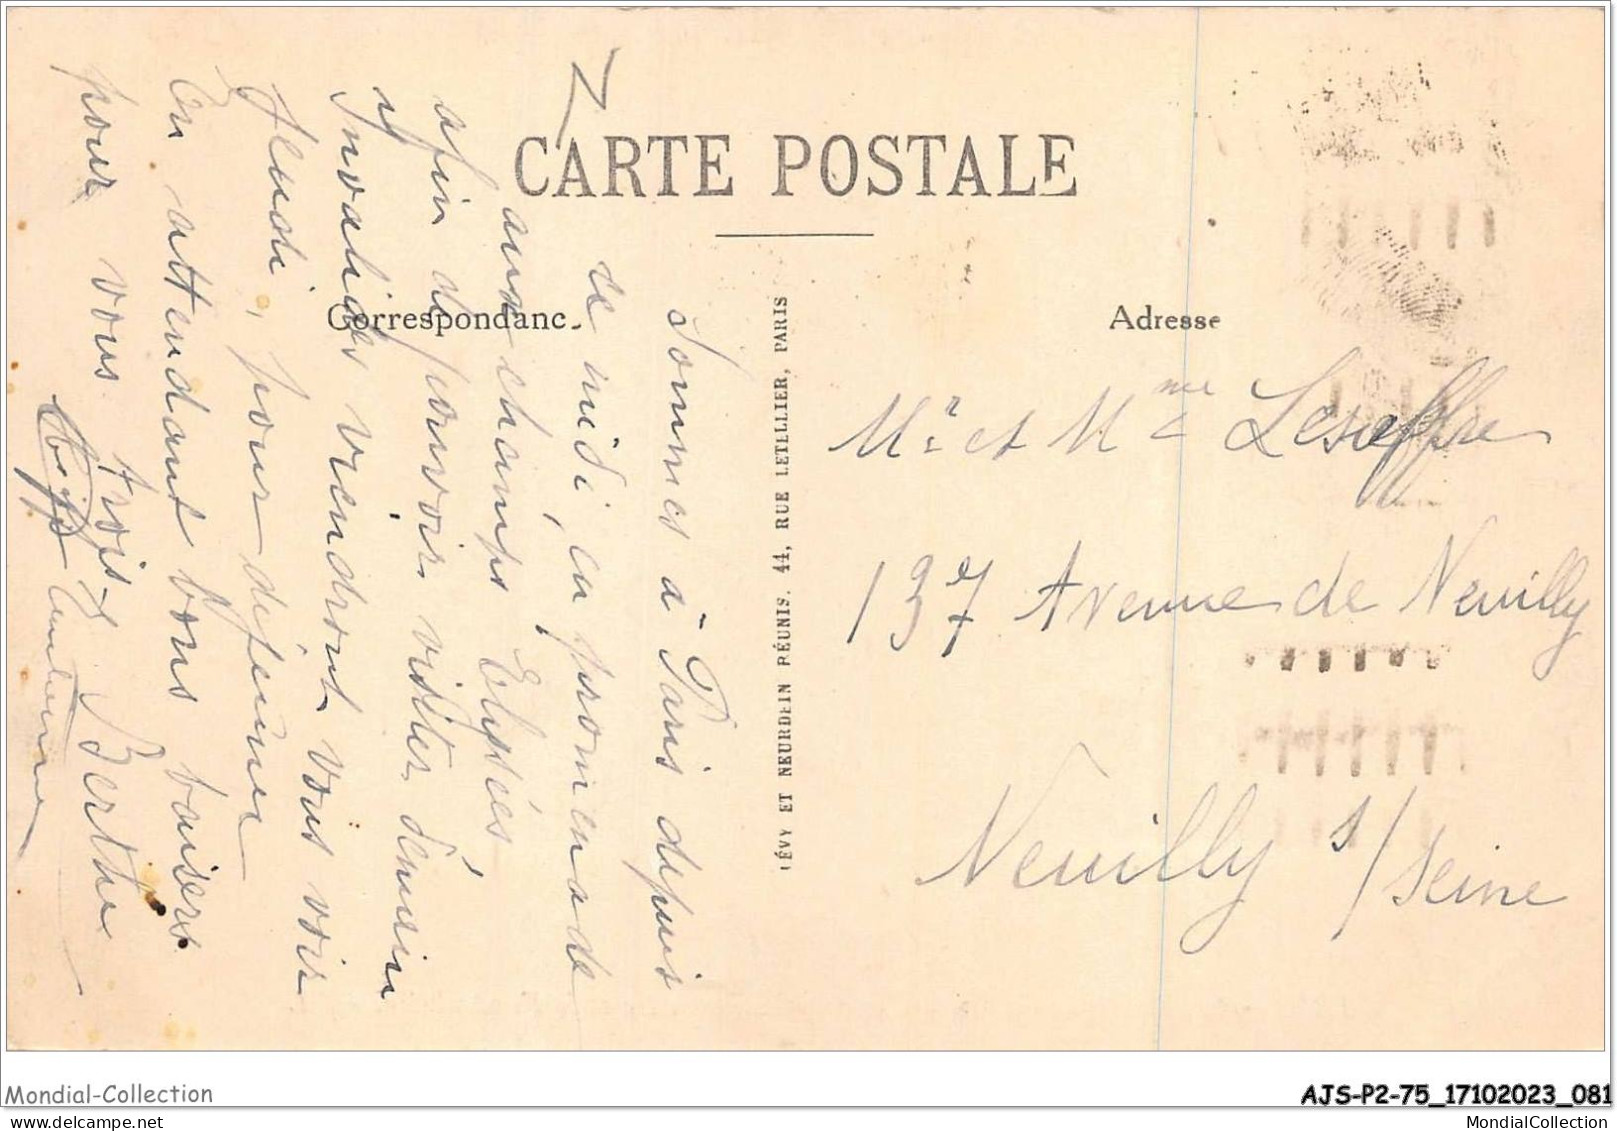 CARTE POSTALE
Correspondanc
Adresse
Sommes à Paris depuis
ce midi, en promenade
aux champs Elysées,
afin de pouvoir visiter demain
Invalides viendront vous voir
Jeudi, pour déjeuner
En attendant bons baisers
pour vous trois
Berthe
LÉVY ET NEURDEIN RÉUNIS. 44, RUE LETELLIER, PARIS
Mr et Mme Leseffre
137 Avenue de Neuilly
Neuilly s/Seine
Mondial-Collection
AJS-P2-75_17102023_081
MondialCollection